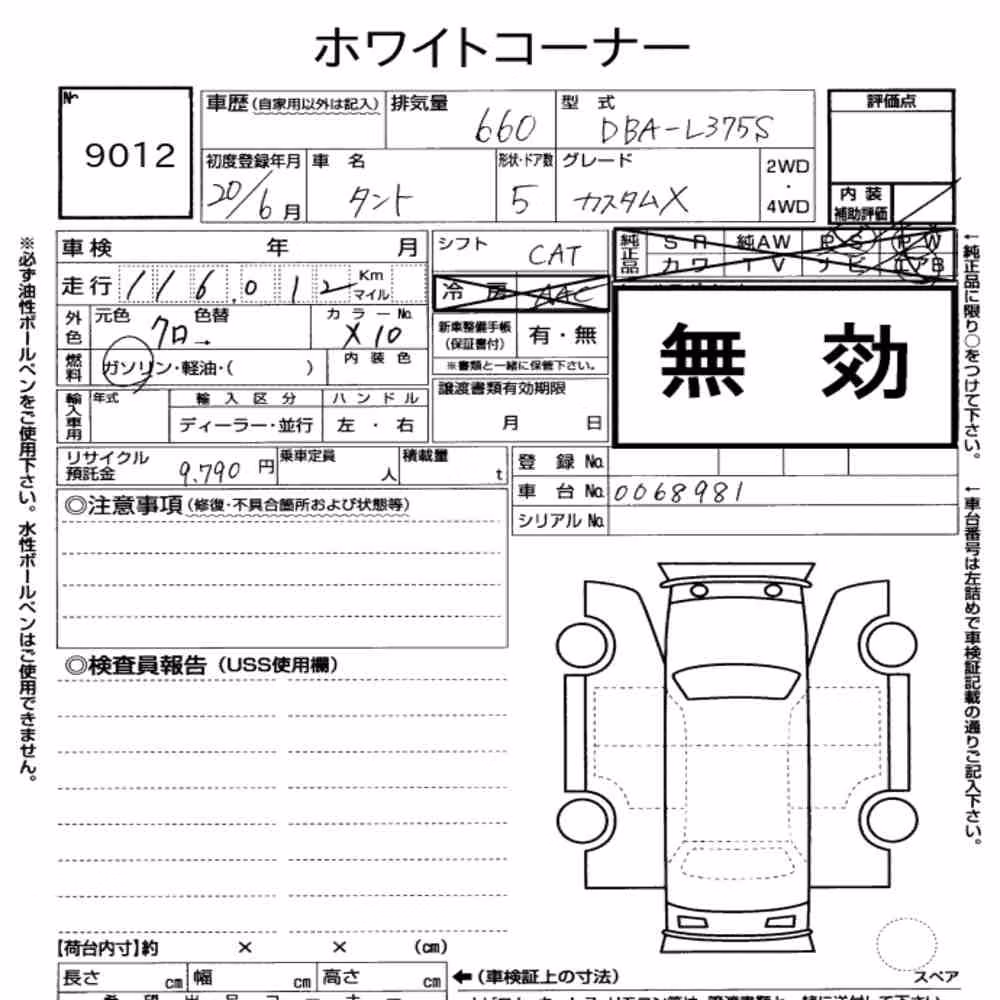 ホワイトコーナー
№
9012
車歴(自家用以外は記入)
排気量
660
型 式
DBA-L375S
評価点
初度登録年月
20/6月
車 名
タント
形状・ドア数
5
グレード
カスタムX
2WD
・
4WD
内 装
補助評価
車検 年 月
シフト
CAT
純正品
S R 純AW P S P W
カワ TV ナビ エアB
走行 116.012 Km
マイル
冷 房 AAC
外色
元色 色替
クロ→
カラーNo.
X10
新車整備手帳
(保証書付)
有・無
※書類と一緒に保管下さい。
無 効
燃料
ガソリン・軽油・( )
内 装 色
譲渡書類有効期限
月 日
輸入車用
年式
輸 入 区 分
ディーラー・並行
ハ ン ド ル
左 ・ 右
リサイクル
預託金
9,790 円
乗車定員
人
積載量
t
登 録 No.
車 台 No. 0068981
シリアル No.
◎注意事項(修復・不具合箇所および状態等)
◎検査員報告(USS使用欄)
【荷台内寸】約 × × (cm)
長さ cm 幅 cm 高さ cm
←(車検証上の寸法)
スペア
※必ず油性ボールペンをご使用下さい。水性ボールペンはご使用できません。
←純正品に限り○をつけて下さい。
←車台番号は左詰めで車検証記載の通りご記入下さい。